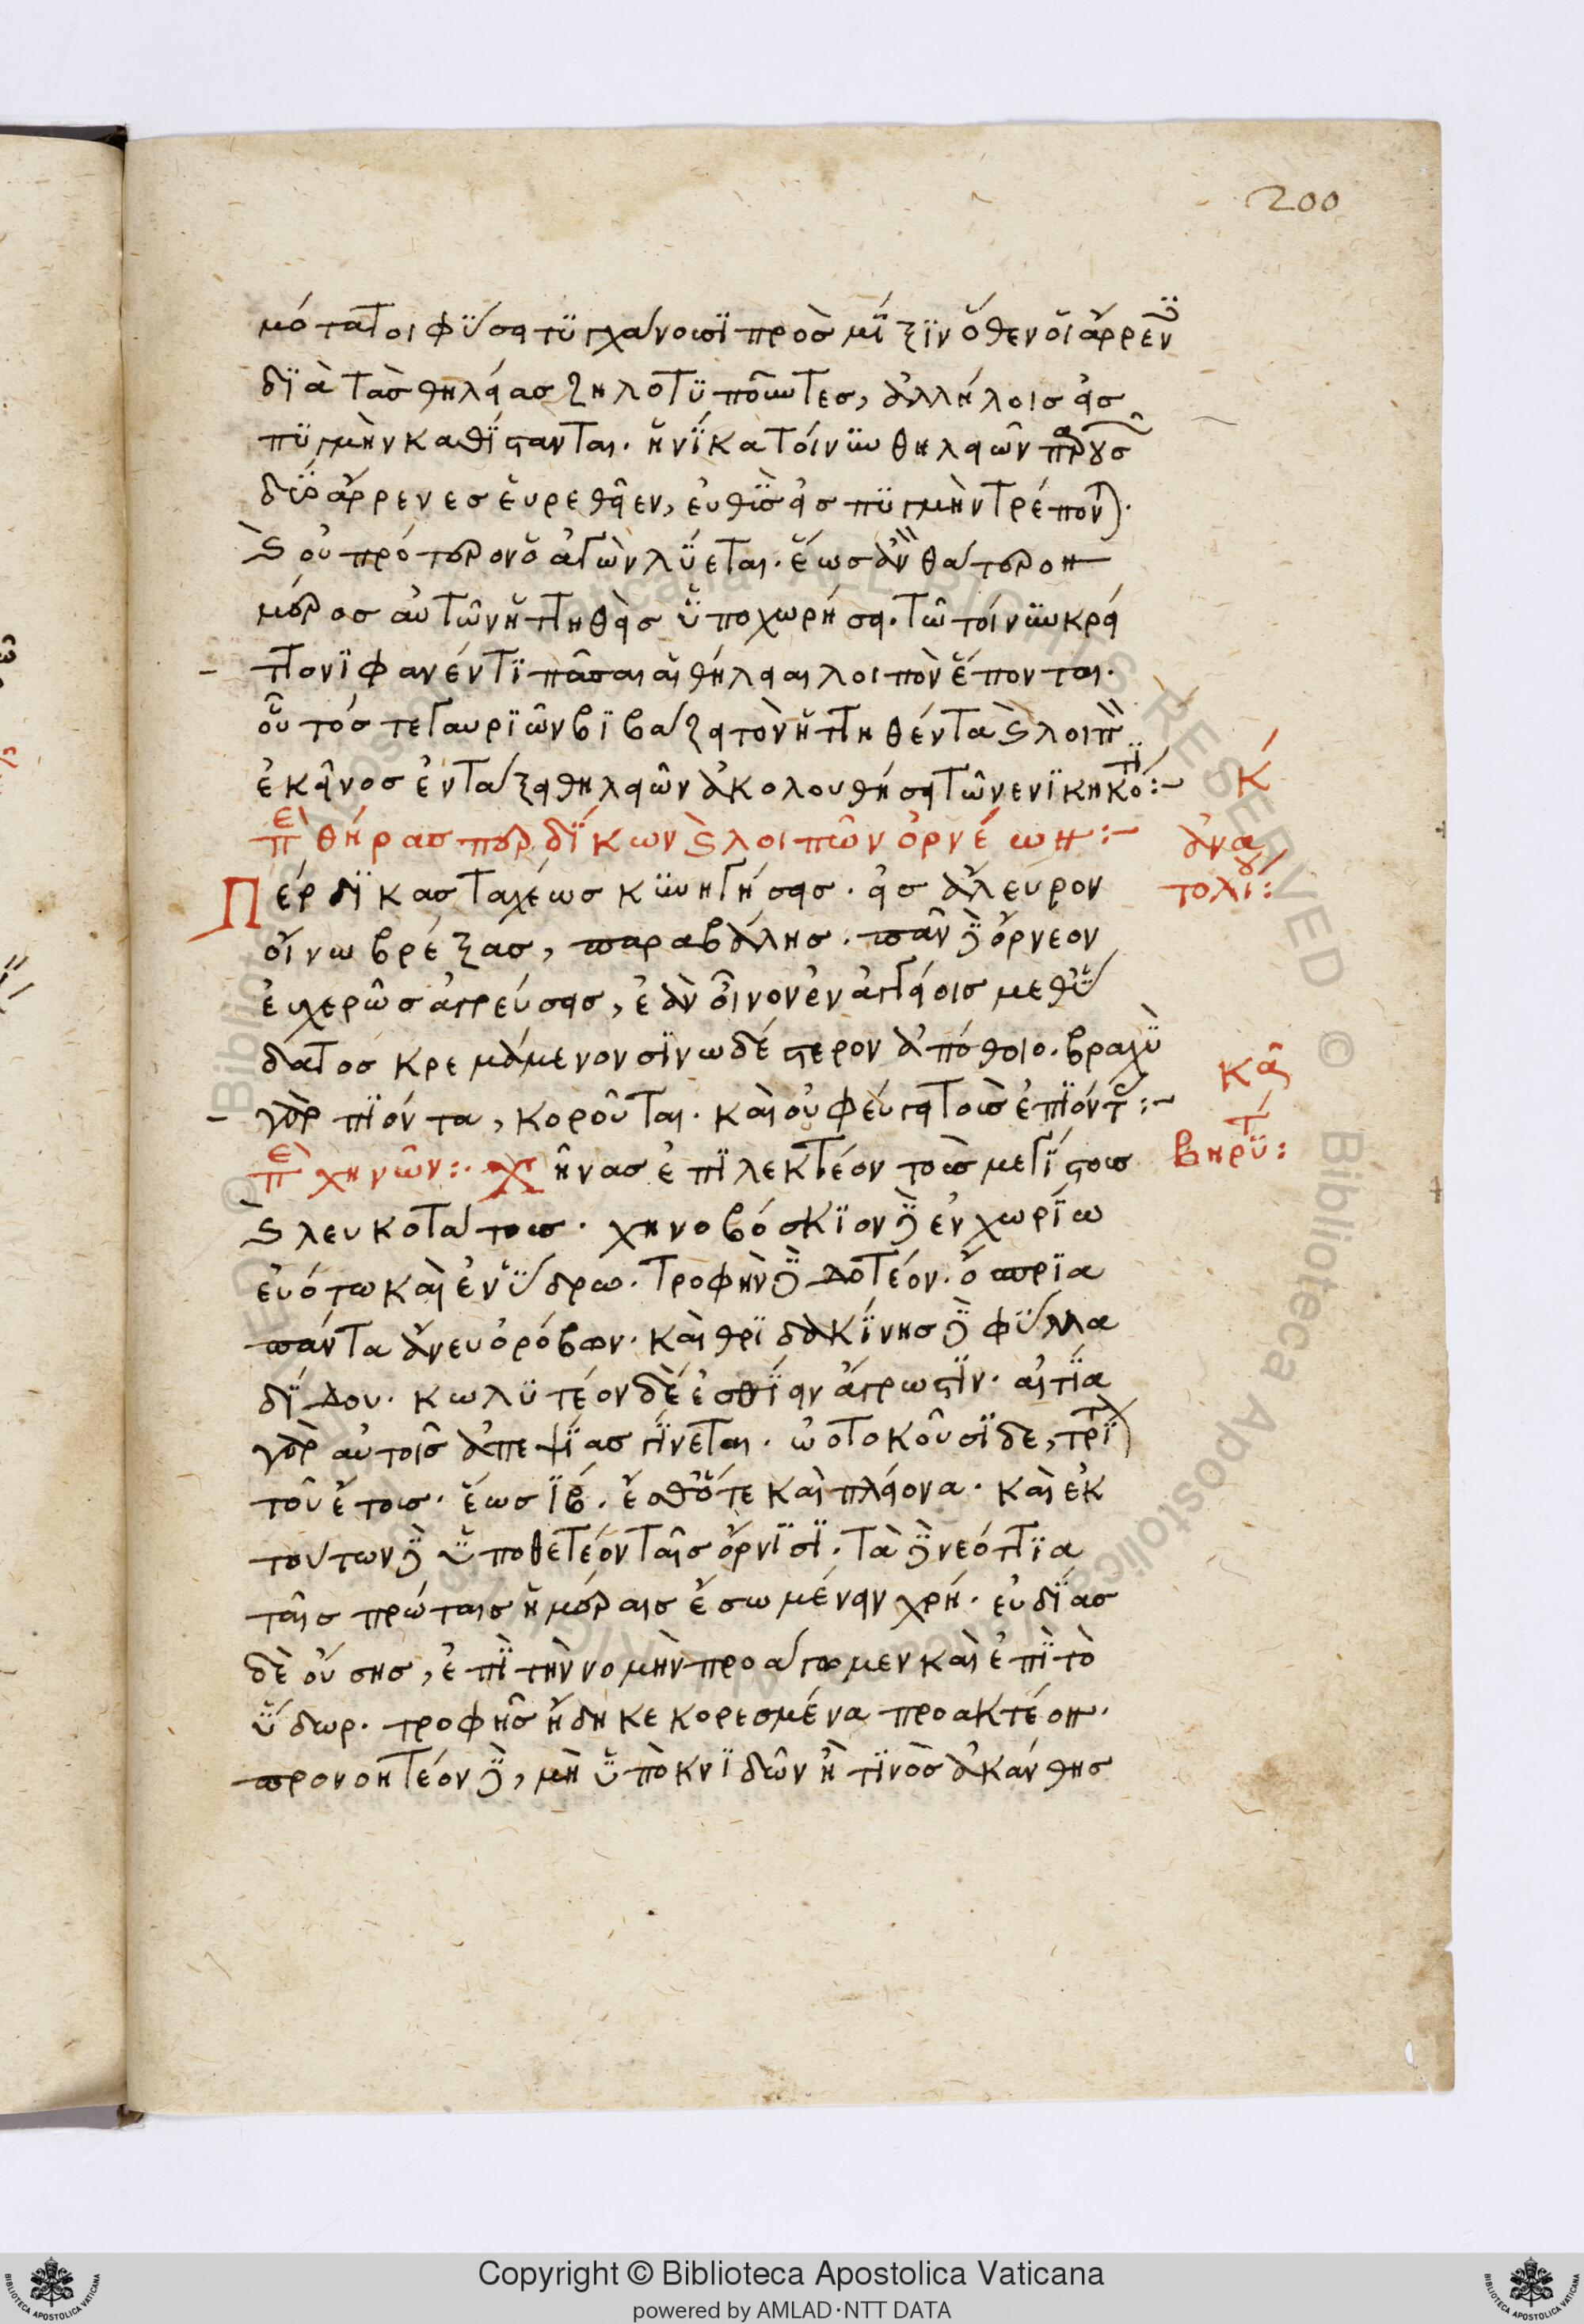 200
μότατοι φύσει τυγχάνουσι πρὸς μίξιν ὅθεν οἱ ἄρρεν
διὰ τὰς θηλείας ζηλοτυποῦντες, ἀλλήλοις εἰς
πυγμὴν καθίστανται. ἡνίκα τοίνυν θηλειῶν παρούσ
δύο ἄρρενες εὑρεθεῖεν, εὐθὺς εἰς πυγμὴν τρέπον.
καὶ οὐ πρότερον ὁ ἀγὼν λύεται. ἕως ἂν θάτερον
μέρος αὐτῶν ἡττηθεὶς ὑποχωρήσει. τῶ τοίνυν κρεί
ττονι φανέντι πᾶσαι αἱ θήλειαι λοιπὸν ἕπονται.
οὗτός τε γαυριῶν βιβάζει τὸν ἡττηθέντα καὶ λοιπ
ἐκεῖνος ἐν τάξει θηλειῶν ἀκολουθήσει τῶ νενικηκότι :~
κ
πε θήρας περδίκων καὶ λοιπῶν ὀρνέων :~
ἀνα
τολίου :
Πέρδικας ταχέως κυνηγήσεις. εἰς ἄλευρον
οἴνω βρέξας, παραβάλης. πᾶν δὲ ὄρνεον
εὐχερῶς ἀγρεύσεις, ἐὰν οἶνον ἐν ἀγγείοις μεθ ὕ
δατος κρεμάμενον σινωδέστερον ἀπόθοιο. βραχὺ
γὰρ πιόντα, κοροῦται. καὶ οὐ φεύγει τοὺς ἐπιόντας :~
κα
πε χηνῶν :. χῆνας ἐπιλεκτέον τοὺς μεγίστους
βηρυτ :
καὶ λευκοτάτους. χηνοβόσκιον δὲ ἐν χωρίω
εὐότω καὶ ἐνύδρω. τροφὴν δὲ δοτέον. ὀσπρια
πάντα ἄνευ ὀρόβων. καὶ θριδακίνης δὲ φύλλα
δίδου. κωλυτέον δὲ ἐσθίειν ἄγρωστιν. αἰτία
γὰρ αὐτοῖς ἀπεψίας γίνεται. ὠοτοκοῦσι δε, τρὶ
τοῦ ἔτους. ἕως ιβ. ἔσθ ὅτε καὶ πλείονα. καὶ ἐκ
τούτων δὲ ὑποθετέον ταῖς ὄρνισι. τὰ δὲ νεόττια
ταῖς πρώταις ἡμέραις ἔσω μένειν χρή. εὐδίας
δὲ οὔσης, ἐπὶ τὴν νομὴν προάγομεν καὶ ἐπὶ τὸ
ὕδωρ. τροφῆς ἤδη κεκορεσμένα προακτέον.
προνοητέον δὲ, μὴ ὑπὸ κνιδῶν ἢ τινὸς ἀκάνθης
Copyright © Biblioteca Apostolica Vaticana
powered by AMLAD·NTT DATA